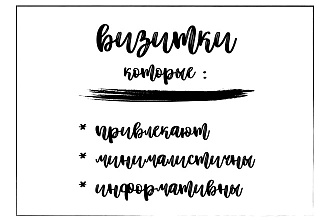 визитки
которые :
* привлекают
* минималистичны
* информативны